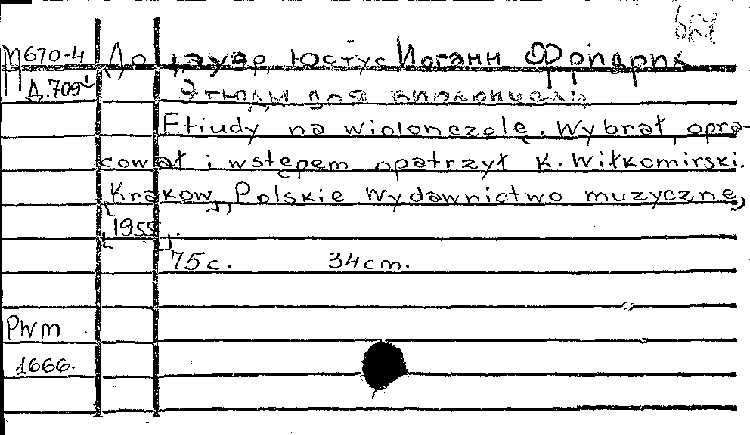 М670-4 До цауэр Юстус Иоганн Фридрих
Д.709¹ Этюды для виолончели
Etiudy na wiolonczelę. Wybrał, opra-
cował i wstępem opatrzył K. Wiłkomirski.
Kraków, Polskie Wydawnictwo muzyczne,
[1955].
75 c. 34 cm.
PWM
1666.